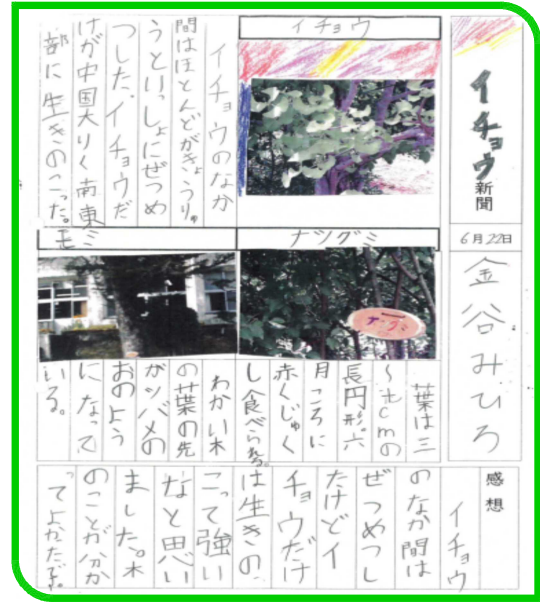 イチョウ新聞
6月22日
金谷みひろ
イチョウ
イチョウのなか
間はほとんどがきょうりゅ
うといっしょにぜつめ
つした。イチョウだ
けが中国大りく南東
部に生きのこった。
ナツグミ
葉は三
～七cmの
長円形。六
月ころに
赤くじゅく
し食べられる。
モミ
わかい木
の葉の先
がツバメの
おのよう
になって
いる。
感想
イチョウ
のなか間は
ぜつめつし
たけどイ
チョウだけ
は生きの
こって強い
なと思い
ました。木
のことが分か
ってよかたです。